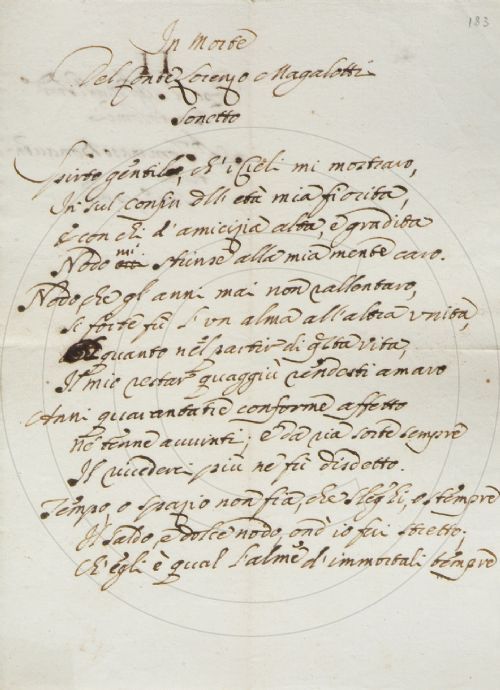 183
In Morte
Del Conte Lorenzo Magalotti
Sonetto
Spirto gentile, ch' i Cieli mi mostraro,
In sul confin dell' età mia fiorita,
E con chi d'amicizia alta e gradita
Nodo mi strinse alla mia mente caro.
Nodo, che gl' anni mai non rallentaro,
Si forte fù l' un alma all' altra unita,
quanto nel partir di q.sta vita,
Il mio restar quaggiù rendesti amaro
Anni quaranta conforme affetto
Ne tenne avvinti; e da ria sorte sempre
Il rivederci più ne fù disdetto.
Tempo, o spazio non fia, che sleghi, o stempre
Il saldo, e dolce nodo, ond' io fui stretto,
Ch' egli è qual l' alme d' immortali tempre